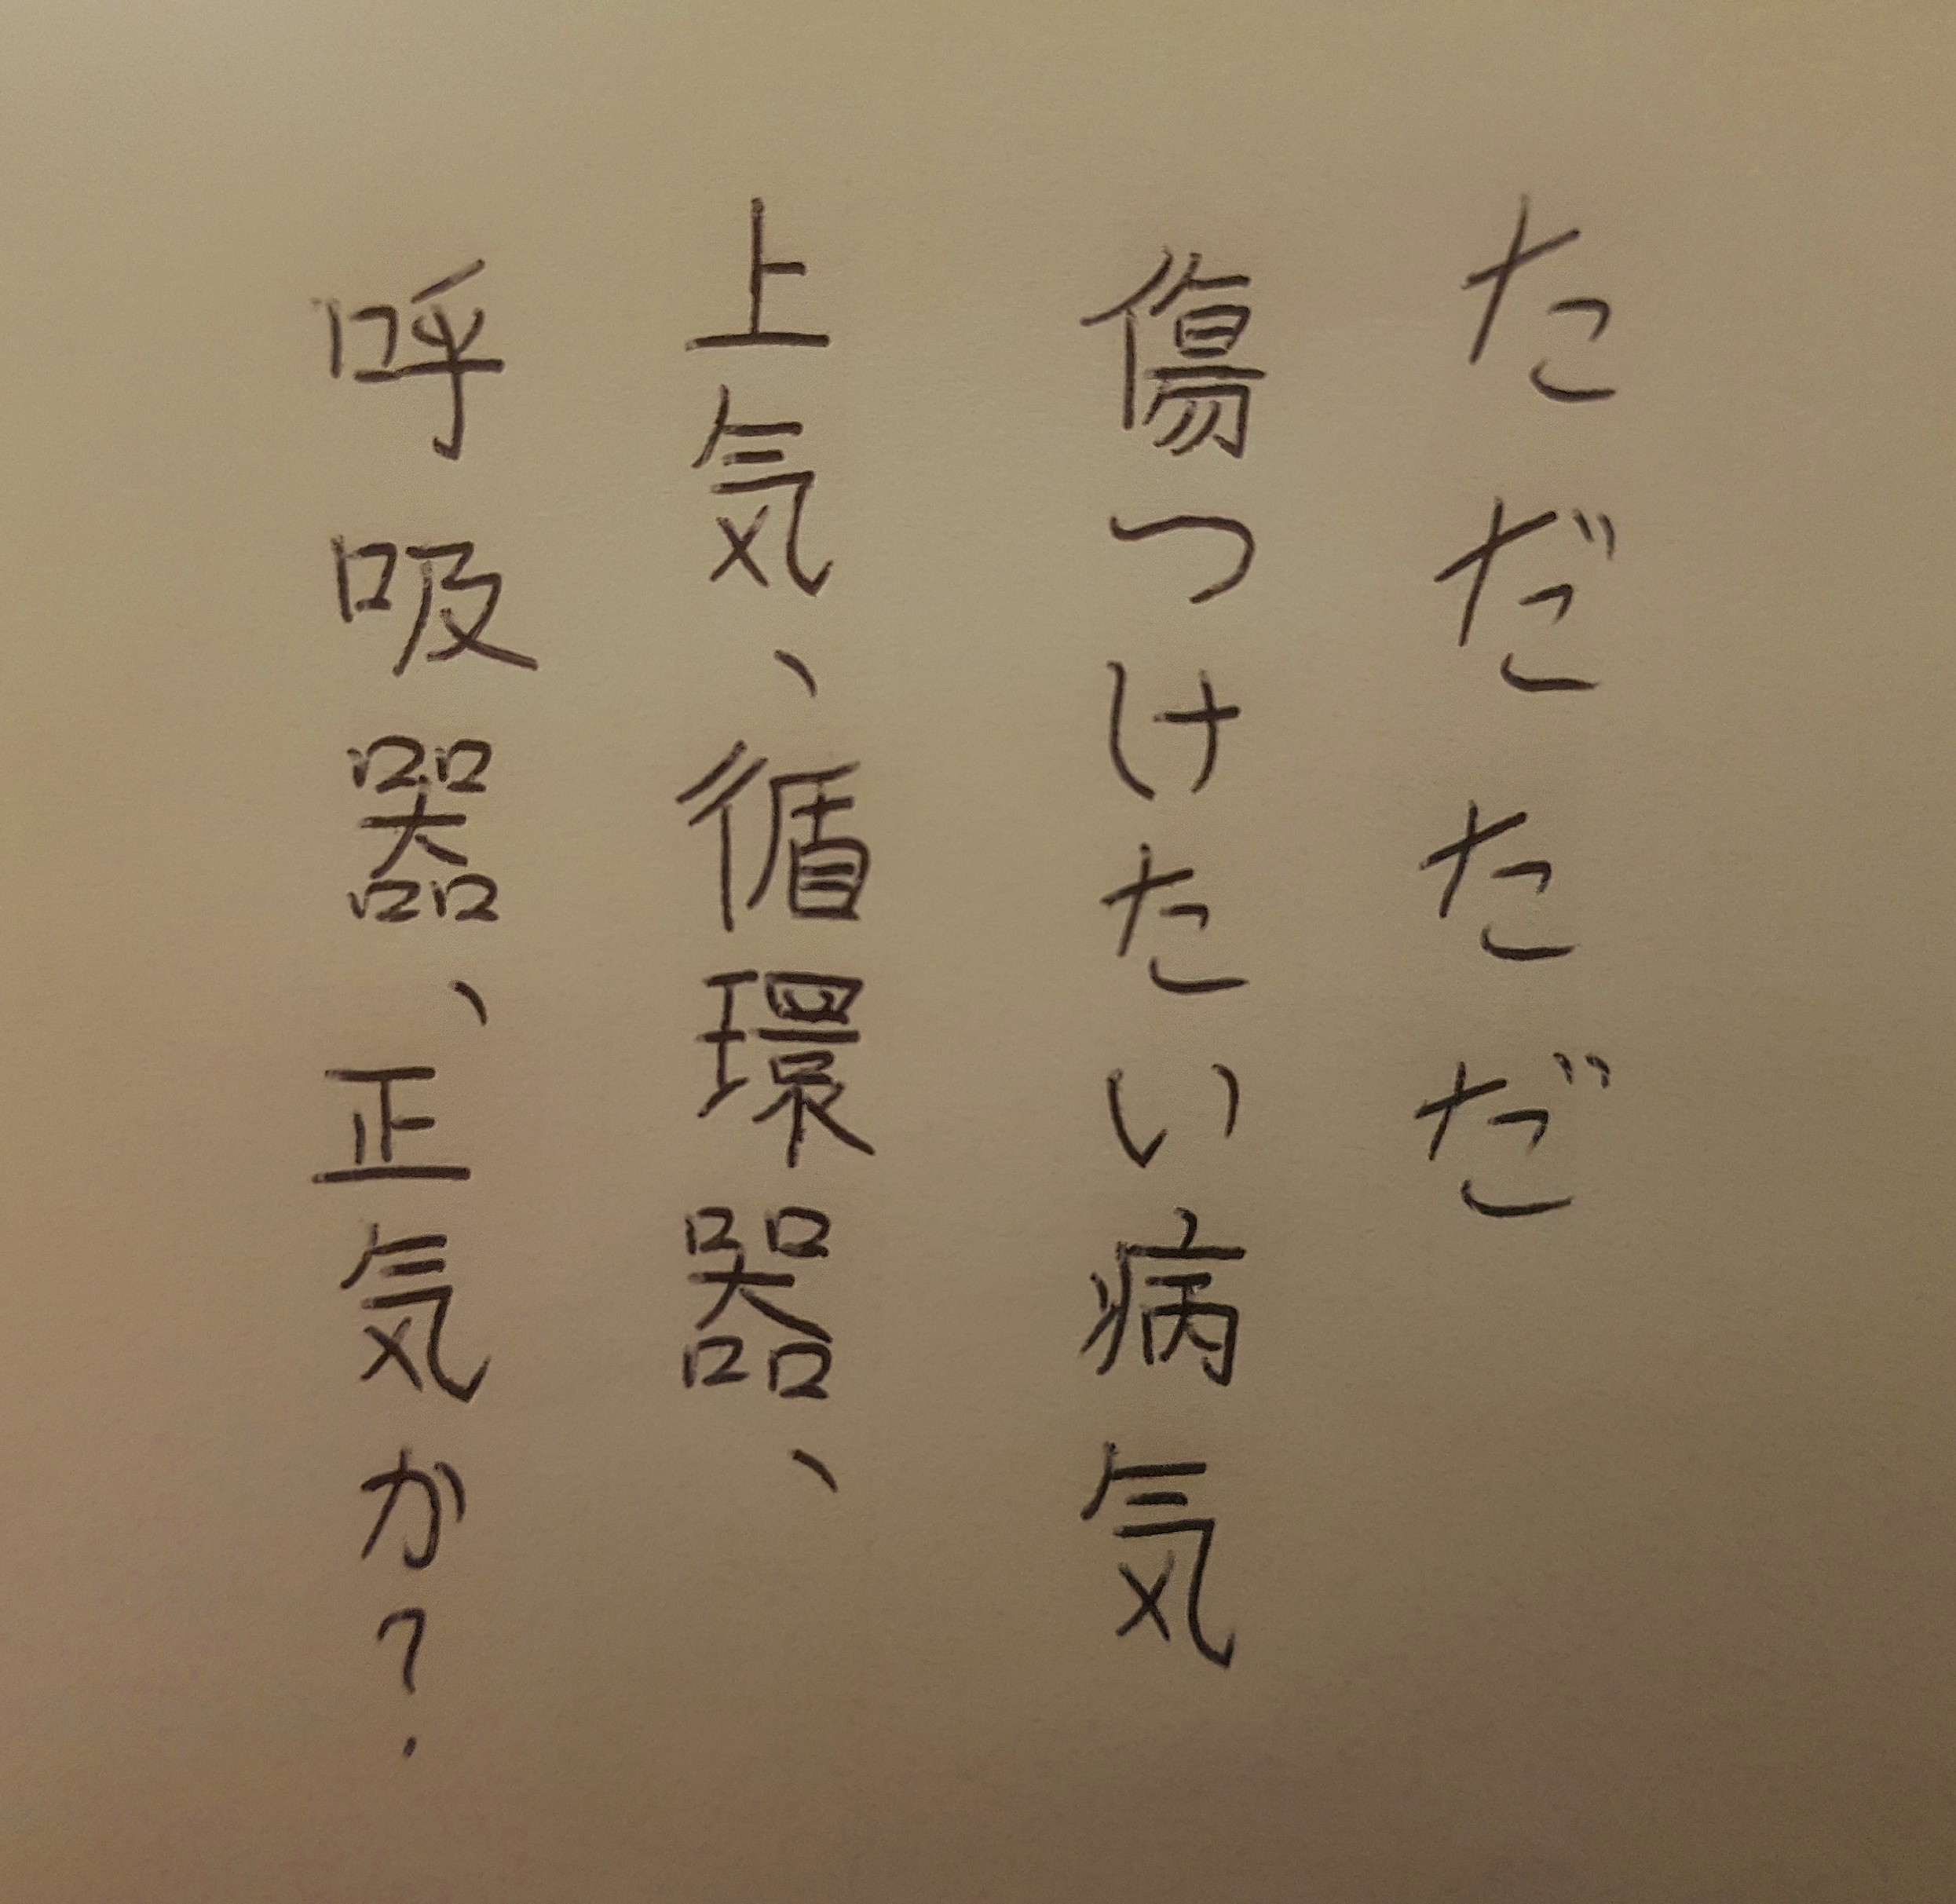 ただただ
傷つけたい病気
上気、循環器、
呼吸器、正気か?